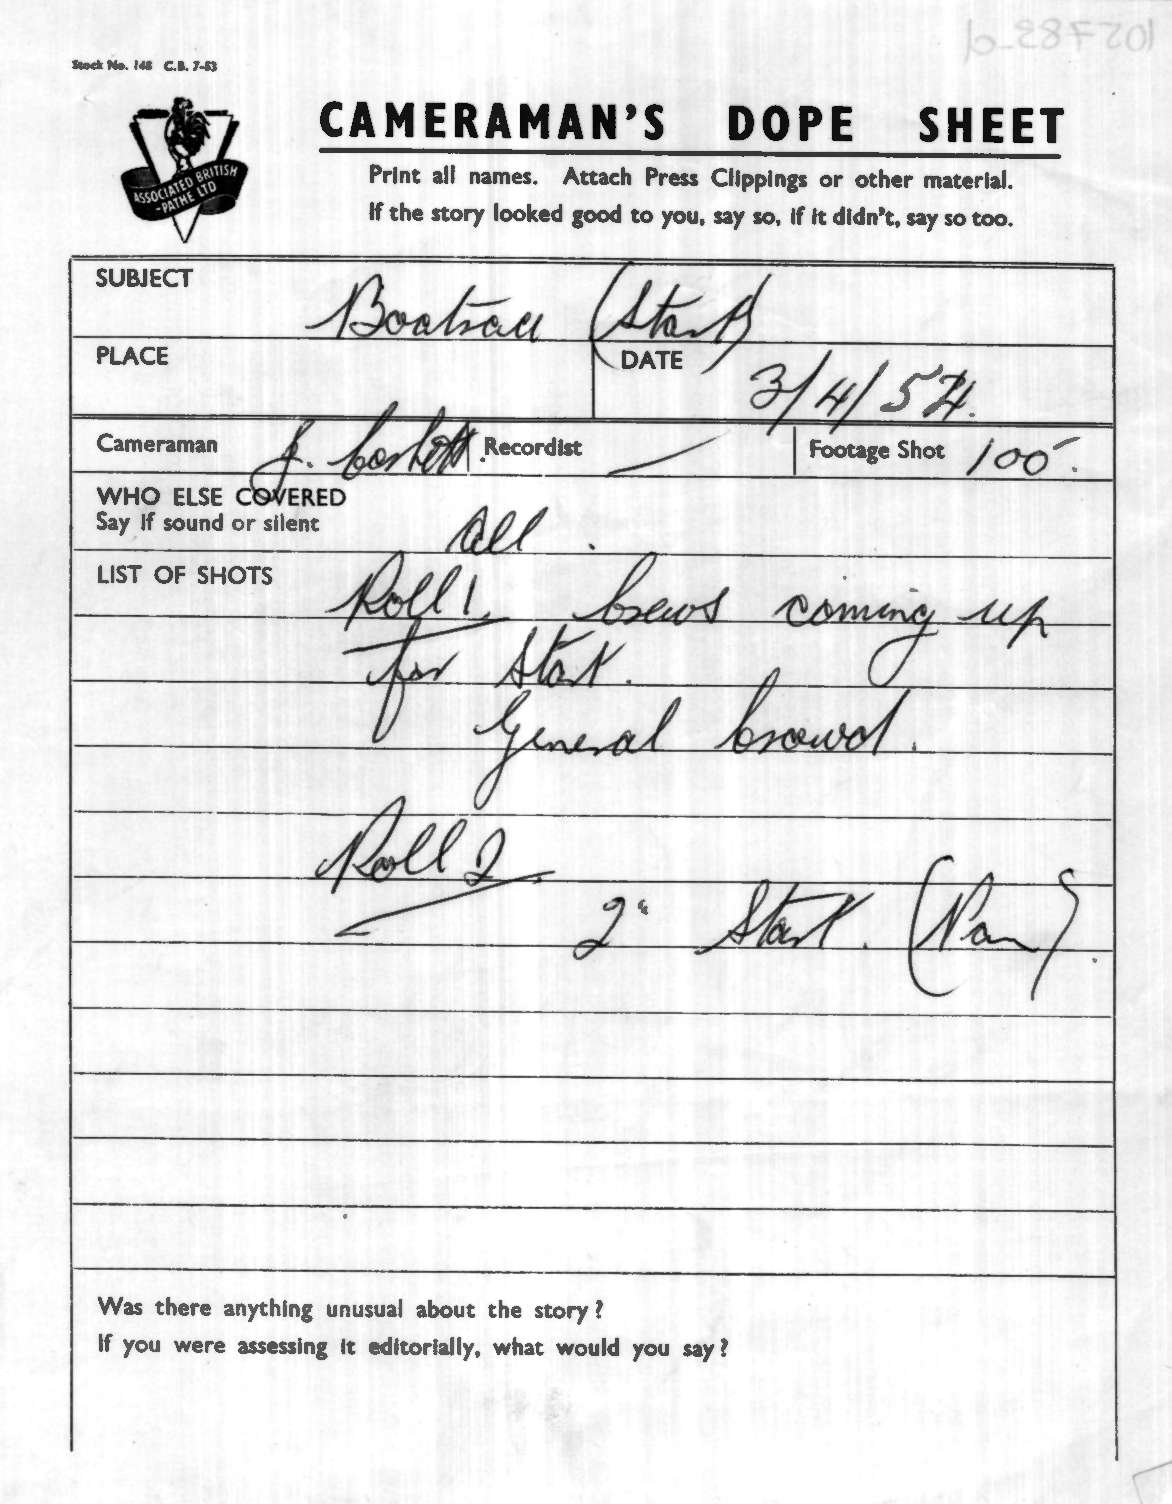 Stock No. 148 C.B. 7-53
CAMERAMAN'S DOPE SHEET
Print all names. Attach Press Clippings or other material.
If the story looked good to you, say so, if it didn't, say so too.
ASSOCIATED BRITISH
-PATHE LTD
SUBJECT Boatrace (Start)
PLACE
DATE 3/4/54.
Cameraman J. Corbett. Recordist — Footage Shot 100'.
WHO ELSE COVERED
Say if sound or silent
All.
LIST OF SHOTS Roll 1. Crews coming up
for Start.
General Crowd.
Roll 2.
2" Start. (Pan).
Was there anything unusual about the story?
If you were assessing it editorially, what would you say?